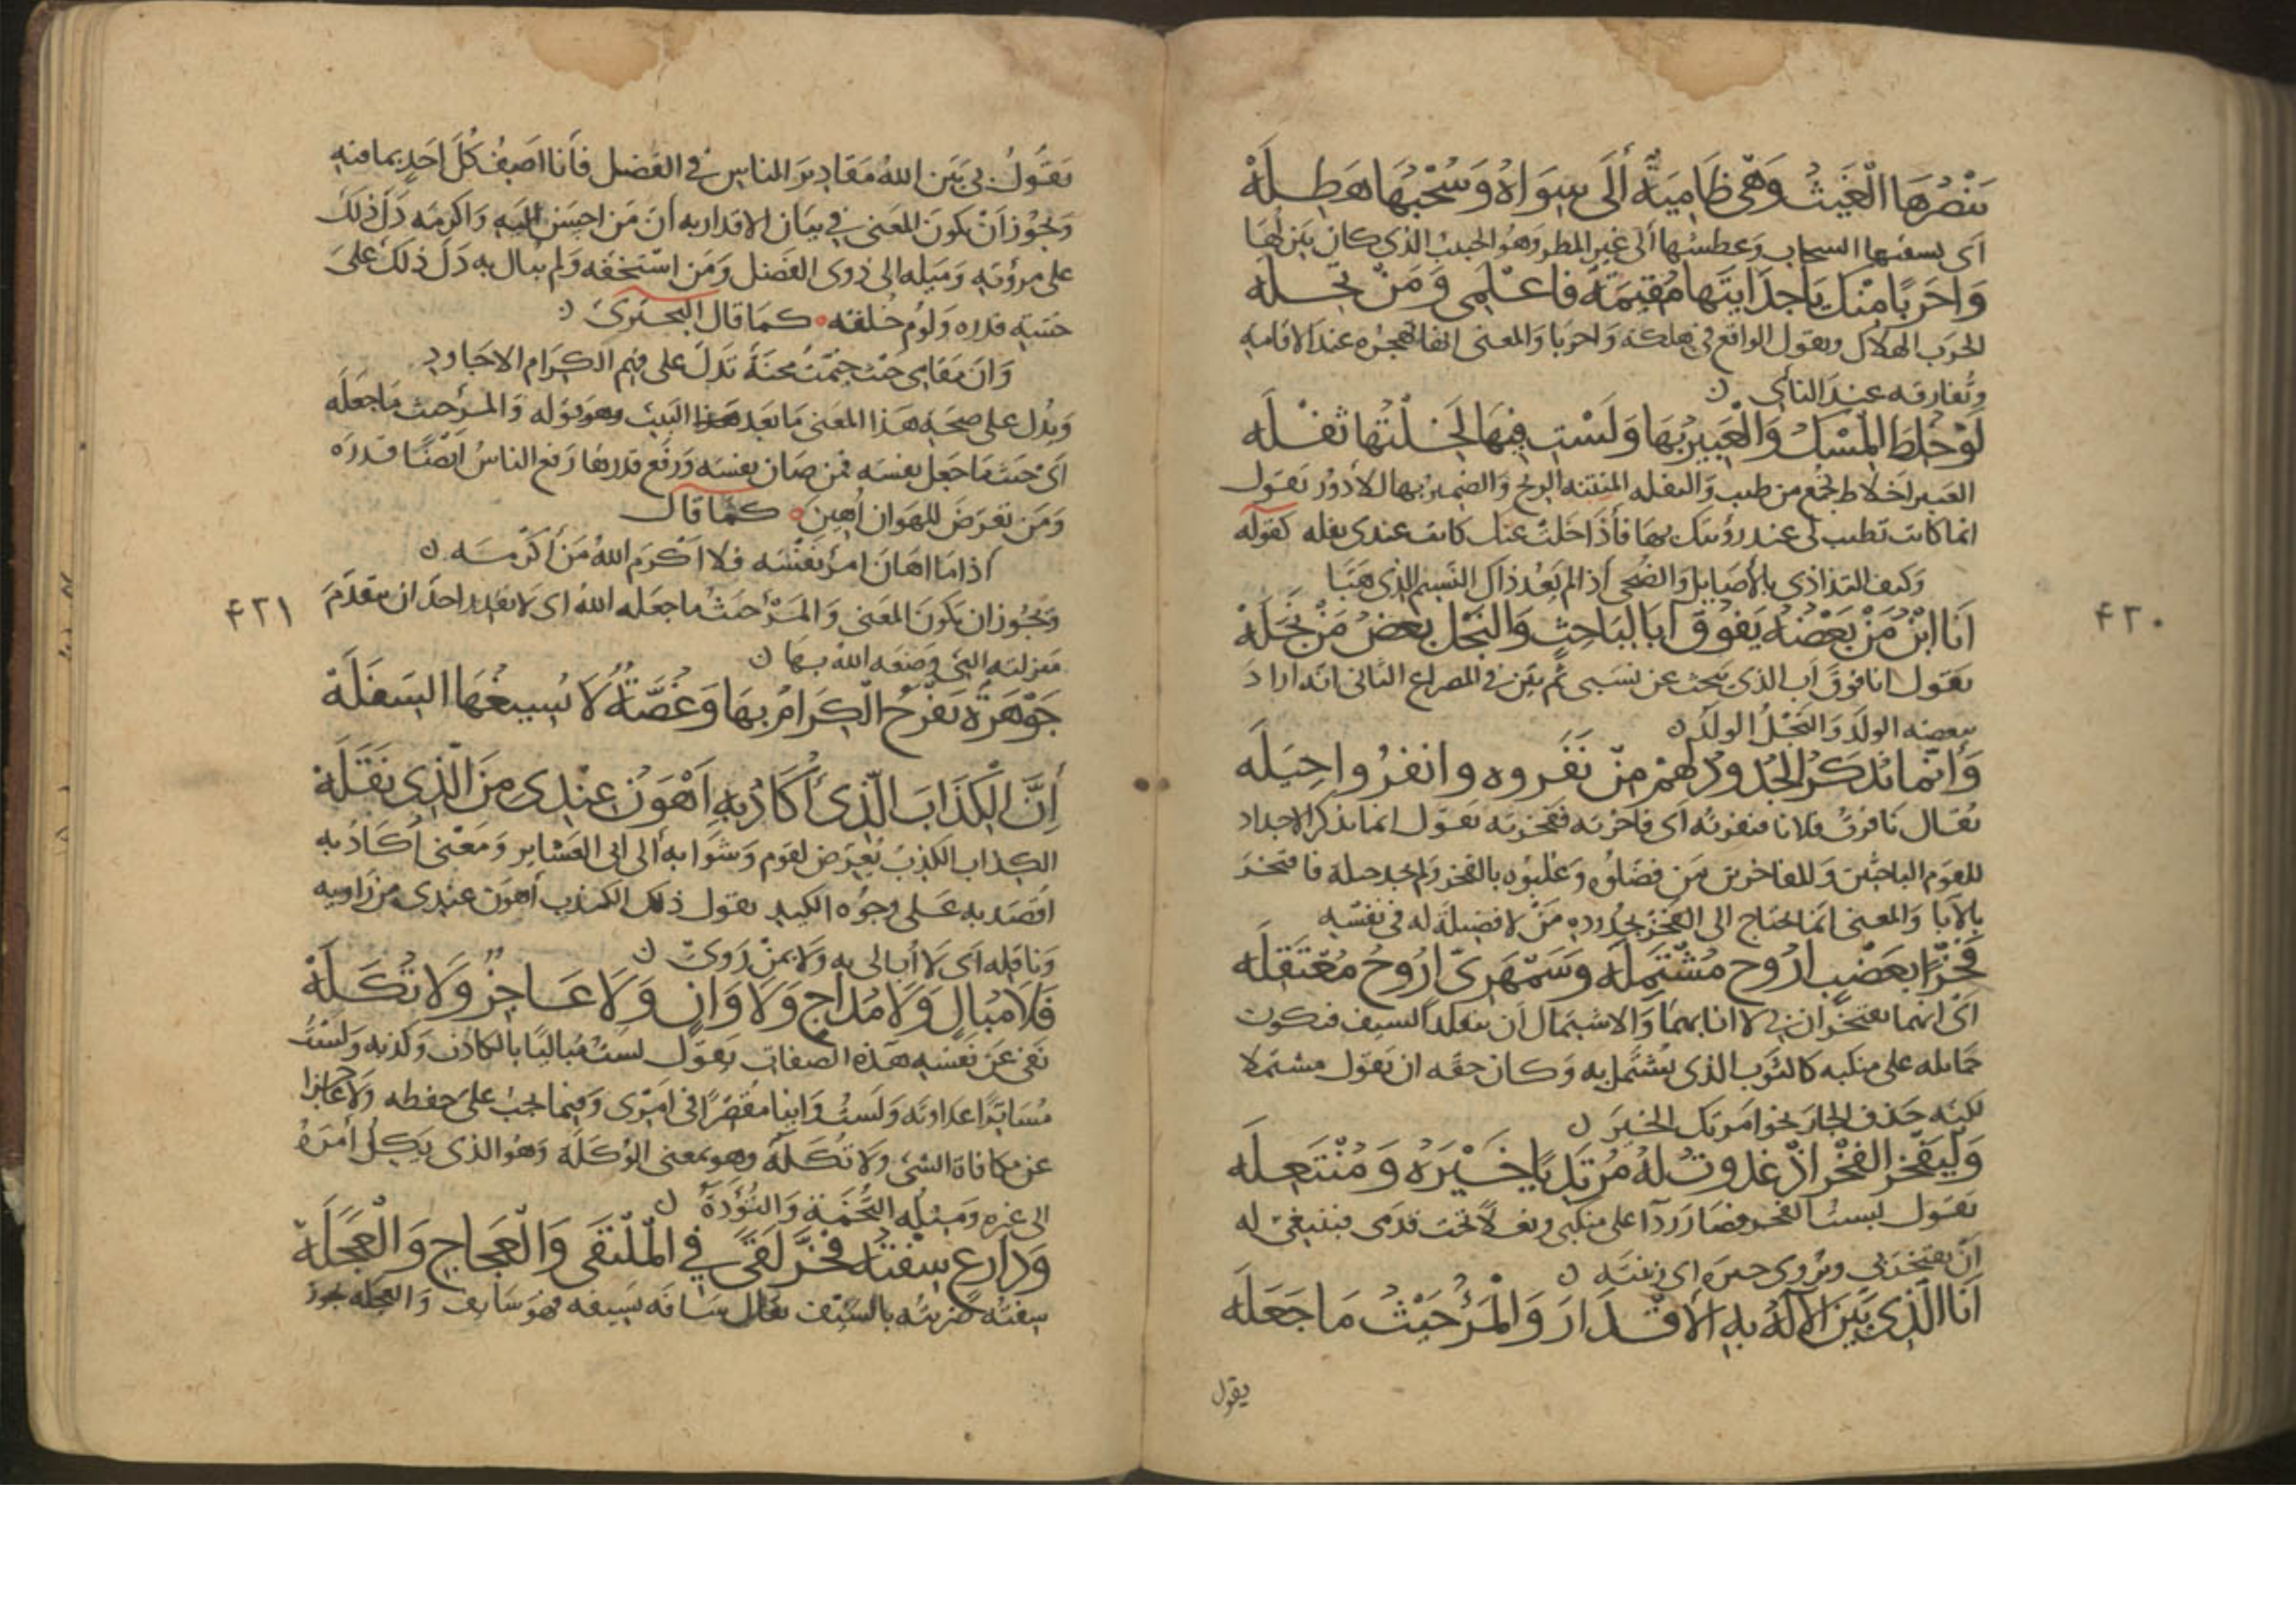 يَنْصُرُهَا الْغَيْثُ وَهْيَ ظَامِيَةٌ إلَى سِوَاهُ وَسُحْبُهَا هَطِلَهْ
أي يسقيها السحاب وعطشها إلى غير المطر وهو الحبيب الذي كان ينزلها
وَاحَرَبًا مِنْكِ يَا جَدَايَتَهَا مُقِيمَةً فَاعْلَمِي وَمُرْتَحِلَهْ
الحرب الهلاك ويقول الواقع في هلكة واحربا والمعنى انها تهجره عند الاقامة
وتفارقه عند النأي ن
لَوْ خُلِطَ الْمِسْكُ وَالْعَبِيرُ بِهَا وَلَسْتِ فِيهَا لَخِلْتُهَا تَفِلَهْ
العبير اخلاط تجمع من طيب والتفله المنتنة الريح والضمير بها للأدؤر يقول
انما كانت تطيب لي عند رؤيتك بها فأذا خلت عنك كانت عندي تفله كقوله
وكيف التذاذي بالأصايل والضحى اذا لم يعد ذاك النسيم الذي هبّا
أَنَا ابْنُ مَنْ بَعْضُهُ يَفُوقُ أَبَا الْبَاحِثِ وَالنَّجْلُ بَعْضُ مَنْ نَجَلَهْ
يقول انا فوق اب الذي يبحث عن نسبي ثم بيّن في المصراع الثاني انه اراد
ببعضه الولد والنجل الولد ن
وَإِنَّمَا يُذْكَرُ الْجُدُودُ لَهُمْ مَنْ نَفَرُوهُ وَانْفَدُوا حِيَلَهْ
يقال نافرت فلانا فنفرته أي فاخرته ففخرته يقول انما يذكر الاجداد
للقوم الباحثين وللمفاخرين من فضلوه وغلبوه بالفخر ولم يجد حيلة فافتخر
بالآبا والمعنى انما يحتاج الى الفخر بجدوده من لا فضيلة له في نفسه
فَخْرًا لِعَضْبٍ أَرُوحُ مُشْتَمِلَهْ وَسَمْهَرِيٍّ أَرُوحُ مُعْتَقِلَهْ
أي انهما يفتخران بي لا انا بهما والاشتمال أن يتقلد السيف فتكون
حمايله على منكبه كالثوب الذي يشتمل به وكان حقه ان يقول مشتملا
لكنه حذف الجار نحو امرتك الخير ن
وَلْيَفْخَرِ الْفَخْرُ اذْ غَدَوْتُ لَهُ مُرْتَدِيًا خَيْرَهُ وَمُنْتَعِلَهْ
يقول لبست الفخر فصار ردآ على منكبي ونعلاً تحت قدمي فينبغي له
أن يفتخر بي ويروى حبره اي زينته ن
أَنَا الَّذِي بَيَّنَ الْإِلَهُ بِهِ الْأَقْدَارَ وَالْمَرْءُ حَيْثُ مَا جَعَلَهْ
يقول
۴۲۰
يقول بي بيّن الله مقادير الناس في الفضل فأنا اصف كل احد بما فيه
ويجوز أن يكون المعنى في بيان الاقدار به أن من احسن اليه واكرمه دل ذلك
على مروته وميله الى ذوي الفضل ومن استخفه ولم يبال به دل ذلك على
خسة قدره ولوم خلقه كما قال البحتري ن
وان مقامي حيث خيمت محنة تدل على فهم الكرام الاجاود
ويدل على صحة هذا المعنى ما بعد هذا البيت وهو قوله والمرء حيث ما جعله
أي حيث ما جعل نفسه فمن صان نفسه ورفع قدرها رفع الناس ايضًا قدره
ومن تعرض للهوان أهين كما قال
اذا ما اهان امرؤ نفسه فلا اكرم الله من أكرمه ن
ويجوز ان يكون المعنى والمرء حيث ما جعله الله اي لا يقدر احد ان يتقدم
منزلته التي وضعه الله بها ن
جَوْهَرَةٌ يَفْرَحُ الْكِرَامُ بِهَا وَغُصَّةٌ لَا يُسِيغُهَا السَّفَلَهْ
إِنَّ الْكِذَابَ الَّذِي أُكَادُ بِهِ أَهْوَنُ عِنْدِي مِنَ الَّذِي نَقَلَهْ
الكذاب الكذب يعرض لقوم وشوا به إلى ابي العشاير ومعنى أكاد به
اقصد به على وجوه الكيد يقول ذلك الكذب أهون عندي من راويه
وناقله أي لا أبالي به ولا بمن روى ن
فَلَا مُبَالٍ وَلَا مُدَاجٍ وَلَا وَانٍ وَلَا عَاجِزٌ وَلَا تُكَلَهْ
نفى عن نفسه هذه الصفات يقول لست مباليًا بالكاذب وكذبه ولست
مساترًا عداوته ولست وانيا مقصرًا في امري وفيما يجب على حفظه ولا عاجزا
عن مكافاة الشيء ولا تكلة وهو بمعنى الوكلة وهو الذي يكل أمره
الى غيره ومثله التخمة والتؤدة ن
وَدَارِعٍ سِفْتُهُ فَخَرَّ لَقًى فِي الْمُلْتَقَى وَالْعَجَاجِ وَالْعَجَلَهْ
سفته ضربته بالسيف يقال سافه يسيفه فهو سايف والعجله يجوز
۴۲۱